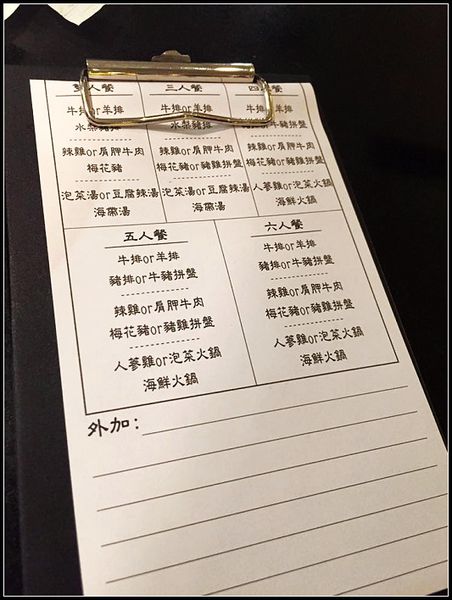 雙人餐
牛排or羊排
水梨豬排
辣雞or肩胛牛肉
梅花豬
泡菜湯or豆腐辣湯
海帶湯
三人餐
牛排or羊排
水梨豬排
辣雞or肩胛牛肉
梅花豬or豬雞拼盤
泡菜湯or豆腐辣湯
海帶湯
四
牛排or羊排
牛豬拼盤
辣雞or肩胛牛肉
梅花豬or豬雞拼盤
人蔘雞or泡菜火鍋
海鮮火鍋
五人餐
牛排or羊排
豬排or牛豬拼盤
辣雞or肩胛牛肉
梅花豬or豬雞拼盤
人蔘雞or泡菜火鍋
海鮮火鍋
六人餐
牛排or羊排
豬排or牛豬拼盤
辣雞or肩胛牛肉
梅花豬or豬雞拼盤
人蔘雞or泡菜火鍋
海鮮火鍋
外加：